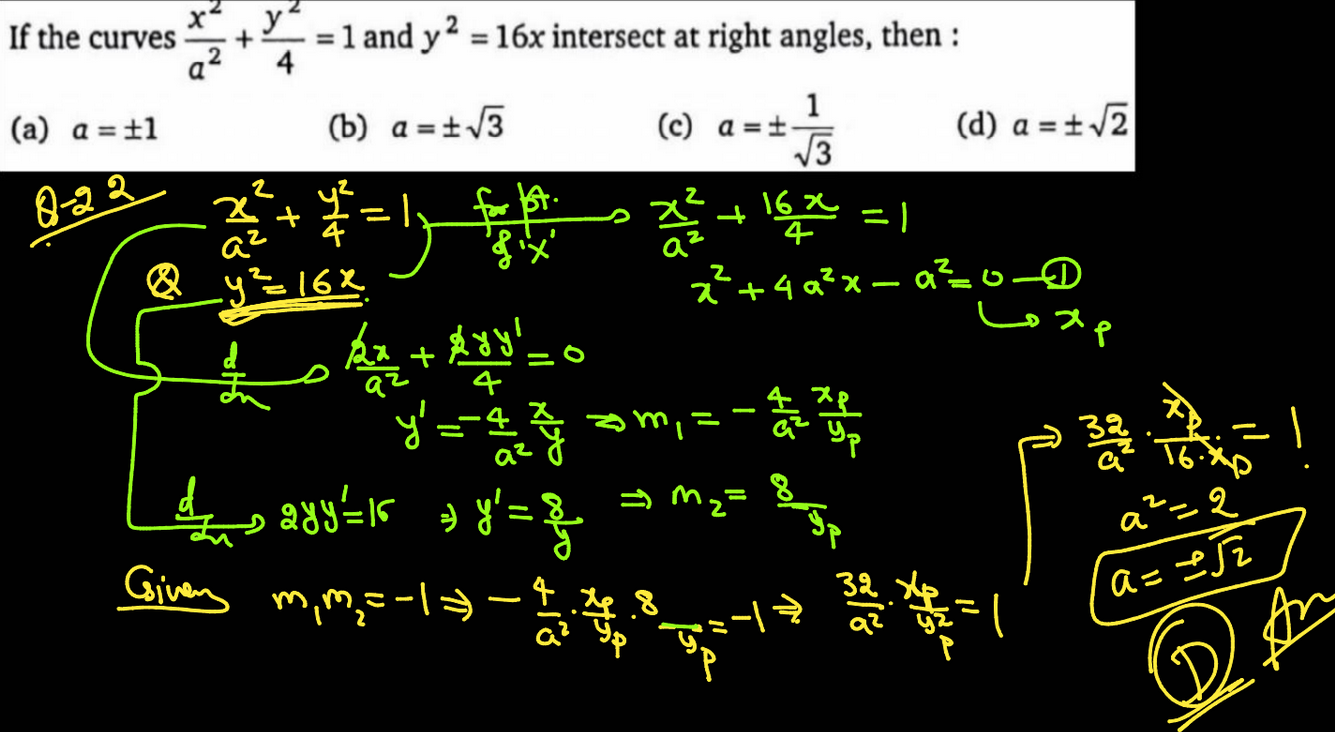 If the curves x²/a² + y²/4 = 1 and y² = 16x intersect at right angles, then :
(a) a = ±1 (b) a = ±√3 (c) a = ±1/√3 (d) a = ±√2
Q-22 x²/a² + y²/4 = 1, for pt. of 'x' → x²/a² + 16x/4 = 1
& y² = 16x.
x² + 4a²x − a² = 0 — ①
↳ x_p
d/dx → 2x/a² + 2yy'/4 = 0
y' = −4/a² x/y ⇒ m₁ = −4/a² x_p/y_p
d/dx → 2yy' = 16 ⇒ y' = 8/y ⇒ m₂ = 8/y_p
Given m₁m₂ = −1 ⇒ −4/a² · x_p/y_p · 8/y_p = −1 ⇒ 32/a² · x_p/y_p² = 1
⇒ 32/a² · x_p/16·x_p = 1.
a² = 2
a = ±√2
D Ans